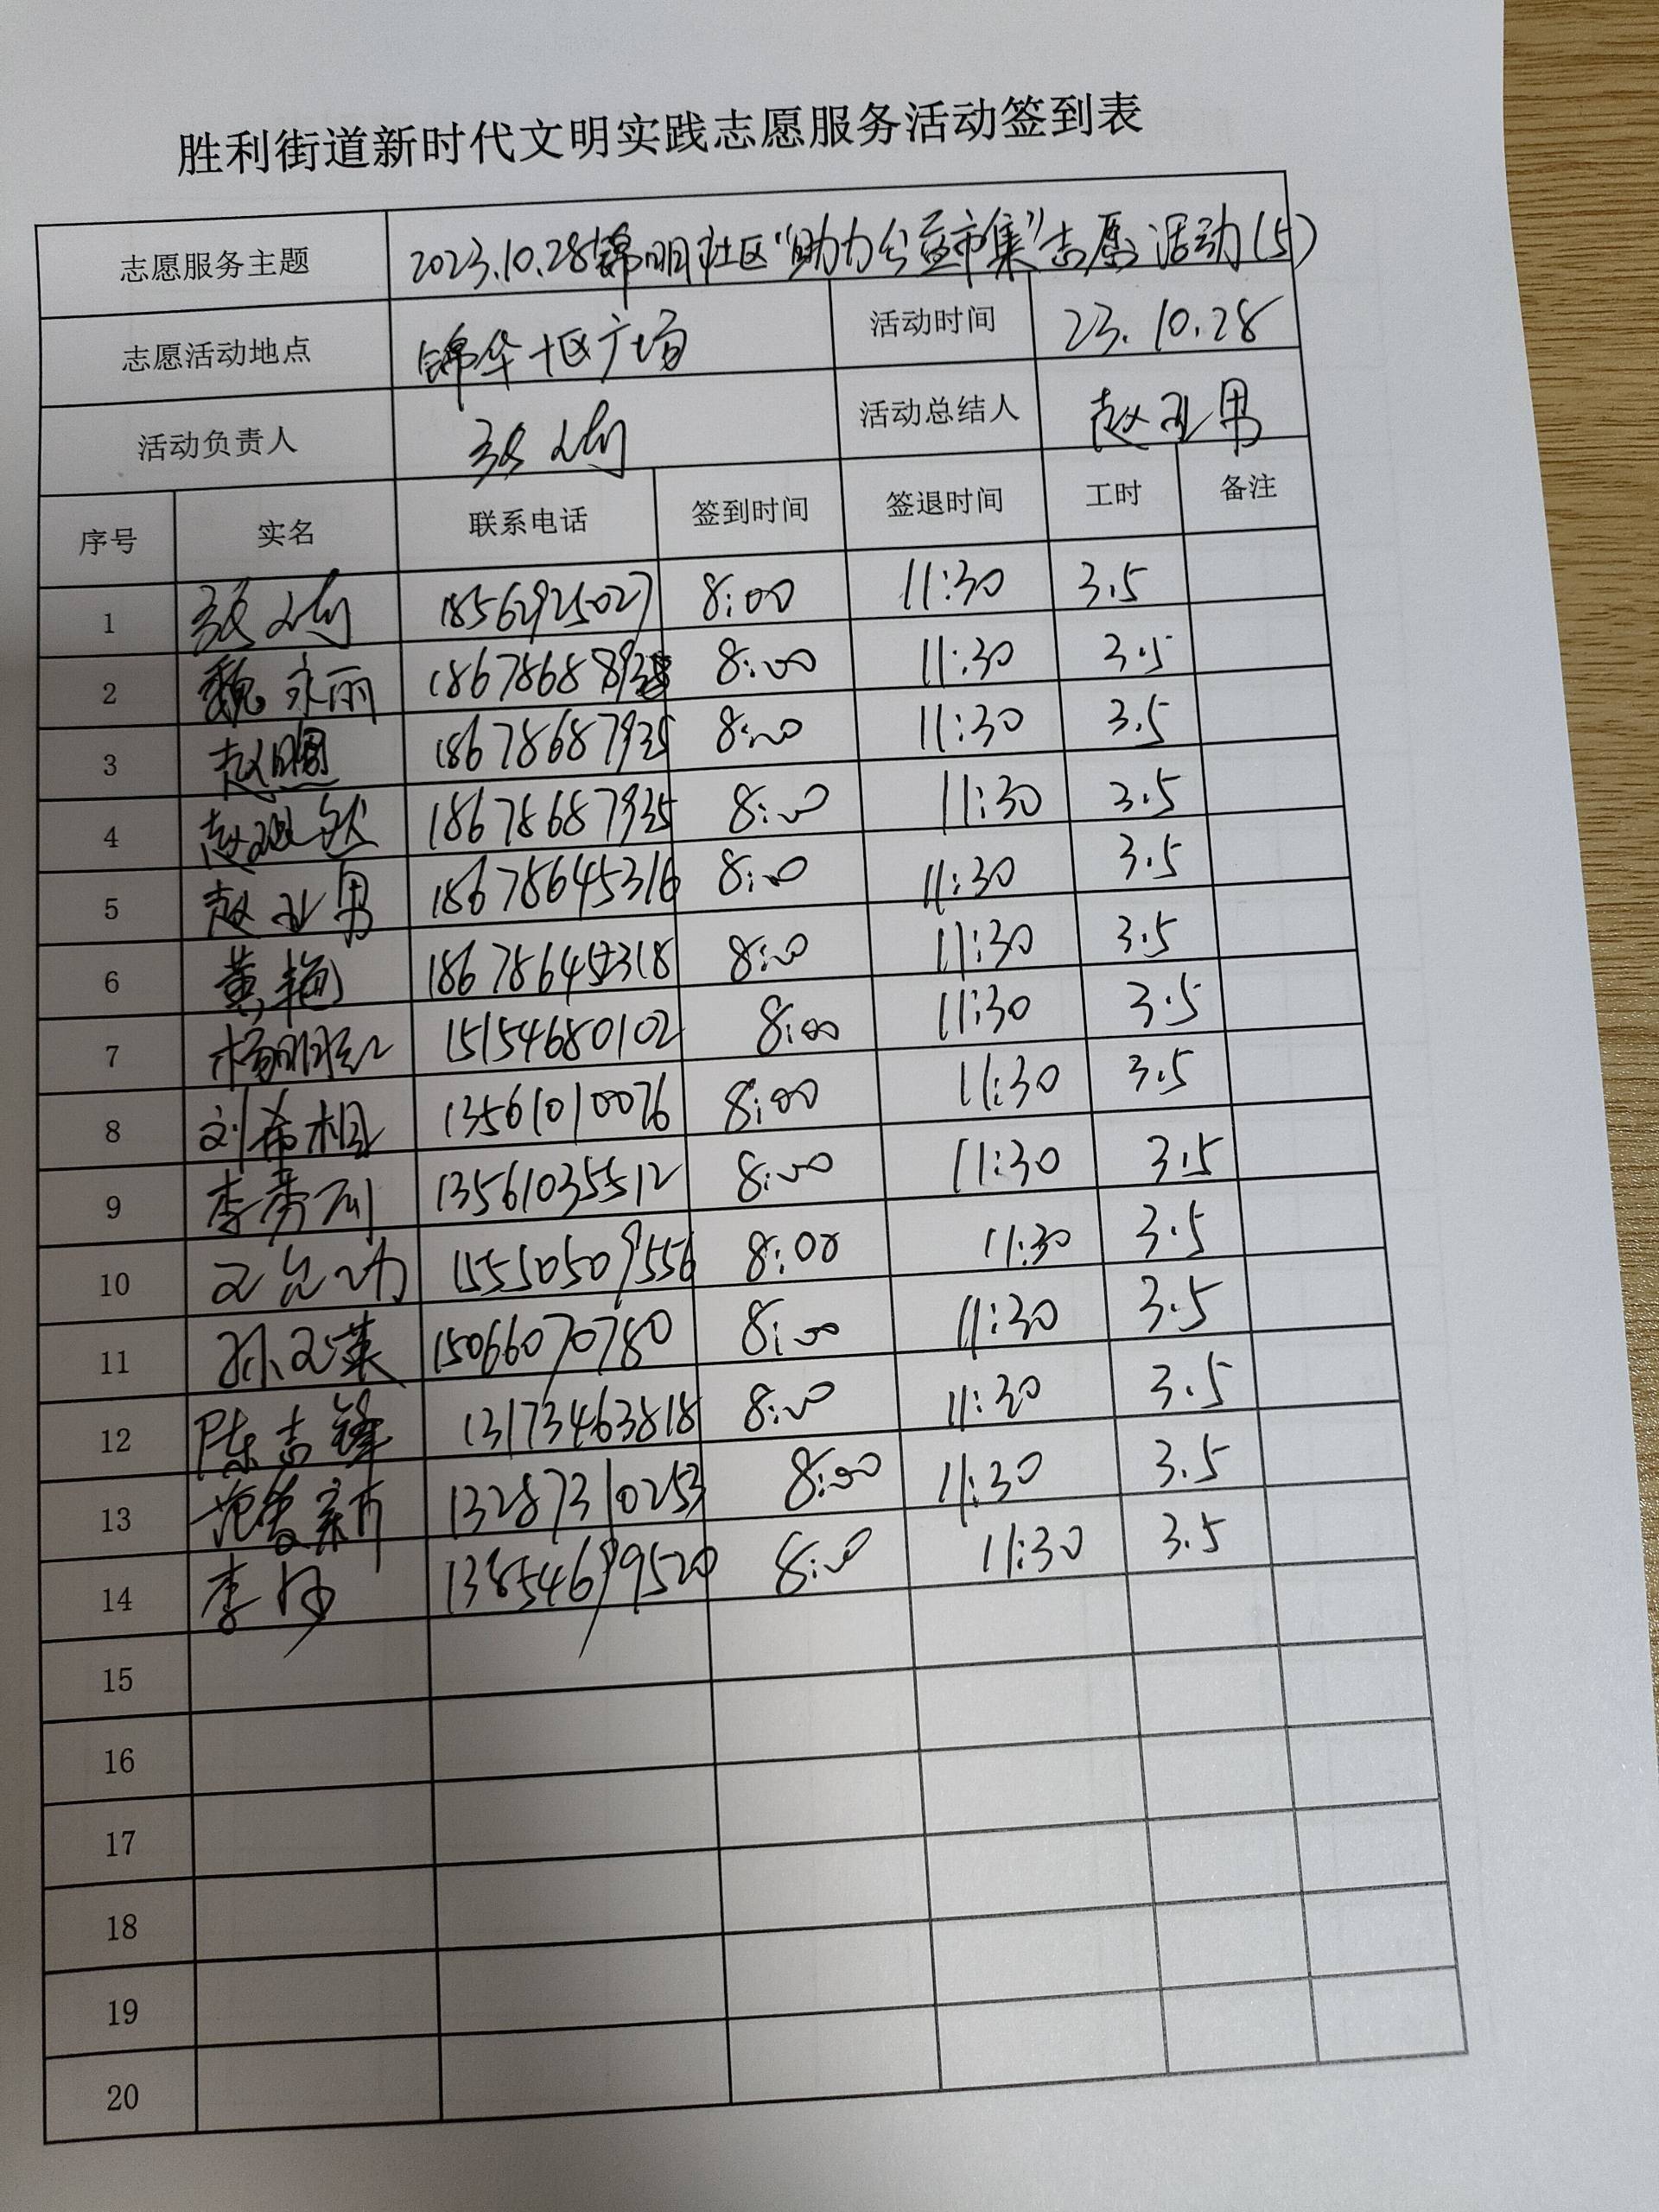 胜利街道新时代文明实践志愿服务活动签到表
志愿服务主题 2023.10.28锦明社区“助力公益市集”志愿活动(5)
志愿活动地点 锦华十区广场 活动时间 23.10.28
活动负责人 活动总结人 赵亚男
序号 实名 联系电话 签到时间 签退时间 工时 备注
1 18562925027 8:00 11:30 3.5
2 魏永丽 8:00 11:30 3.5
3 赵 18678687935 8:00 11:30 3.5
4 赵 然 18678687935 8:00 11:30 3.5
5 赵亚男 18678645316 8:00 11:30 3.5
6 黄艳 18678645318 8:00 11:30 3.5
7 杨明红 15154680102 8:00 11:30 3.5
8 刘希相 13561010076 8:00 11:30 3.5
9 李 13561035512 8:00 11:30 3.5
10 15550509556 8:00 11:30 3.5
11 孙文英 15066070780 8:00 11:30 3.5
12 陈志锋 13173463818 8:00 11:30 3.5
13 范鲁新 13287310253 8:00 11:30 3.5
14 李 13854699520 8:00 11:30 3.5
15
16
17
18
19
20